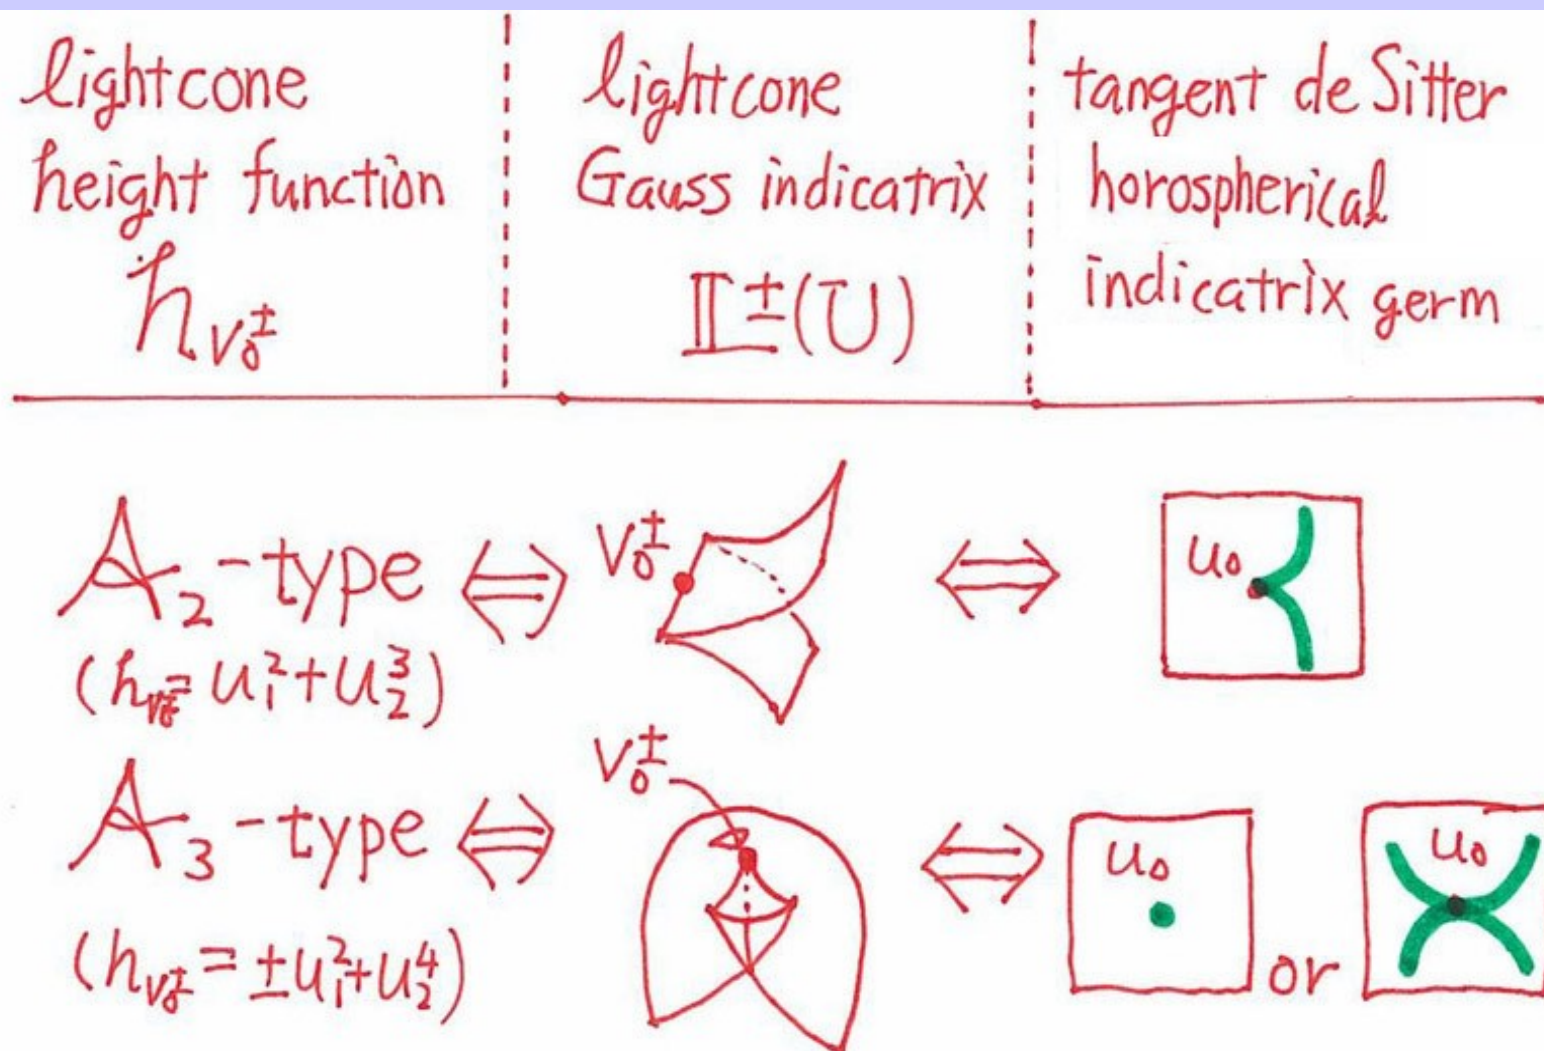 lightcone
height function
h_{v_0^±}
lightcone
Gauss indicatrix
𝕃^±(U)
tangent de Sitter
horospherical
indicatrix germ
A_2-type ⇔ v_0^± ⇔ u_0
(h_{v_0^±} = u_1^2 + u_2^3)
A_3-type ⇔ v_0^± ⇔ u_0 or u_0
(h_{v_0^±} = ±u_1^2 + u_2^4)